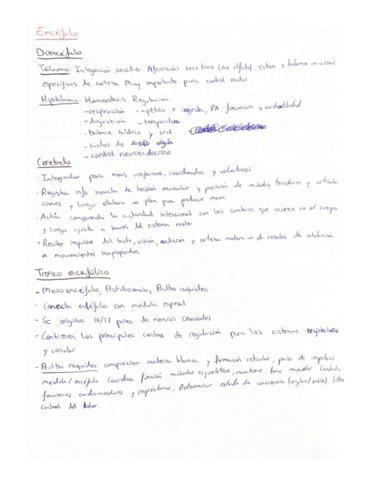 Encéfalo
Diencéfalo
Tálamo: Integración sensitiva. Aferencias sensitivas (no olfato), estan a tálamo → areas
específicas de corteza. Muy importante para control motor
Hipotálamo: Homeostasis Regulación.
- respiración - apetito e ingesta, PA, y
- digestión - temperatura
- balance hídrico y sed
- ciclos de sueño vigía
- control neuroendocrino
Cerebelo
- Integrador para movs uniformes, coordinados y voluntarios
- Registra info exacta de tensión muscular y posición de músculos, tendones y articula
ciones y luego elabora un plan para producir mov.
- Actúa comparando la actividad intencional con los cambios que ocurren en el cuerpo
y luego ajusta a través del sistema motor.
- Recibe impulsos del tacto, visión, audición y corteza motora → da señales de inhibición
a movimientos inapropiados.
Tronco encefálico
- Mesencéfalo, Protuberancia, Bulbo raquídeo
- Conecta encéfalo con médula espinal
- Se originan 10/12 pares de nervios craneales
- Contienen los principales centros de regulación para los sistemas respiratorio
y circular
- Bulbo raquídeo composición materia blanca y formación reticular, paso de impulsos
médula/encéfalo. Coordina función músculos esqueléticos, mantiene tono muscular. Controla
funciones cardiovasculares y respiratorias. Determinar estado de conciencia (vigilia/sueño)
control del dolor